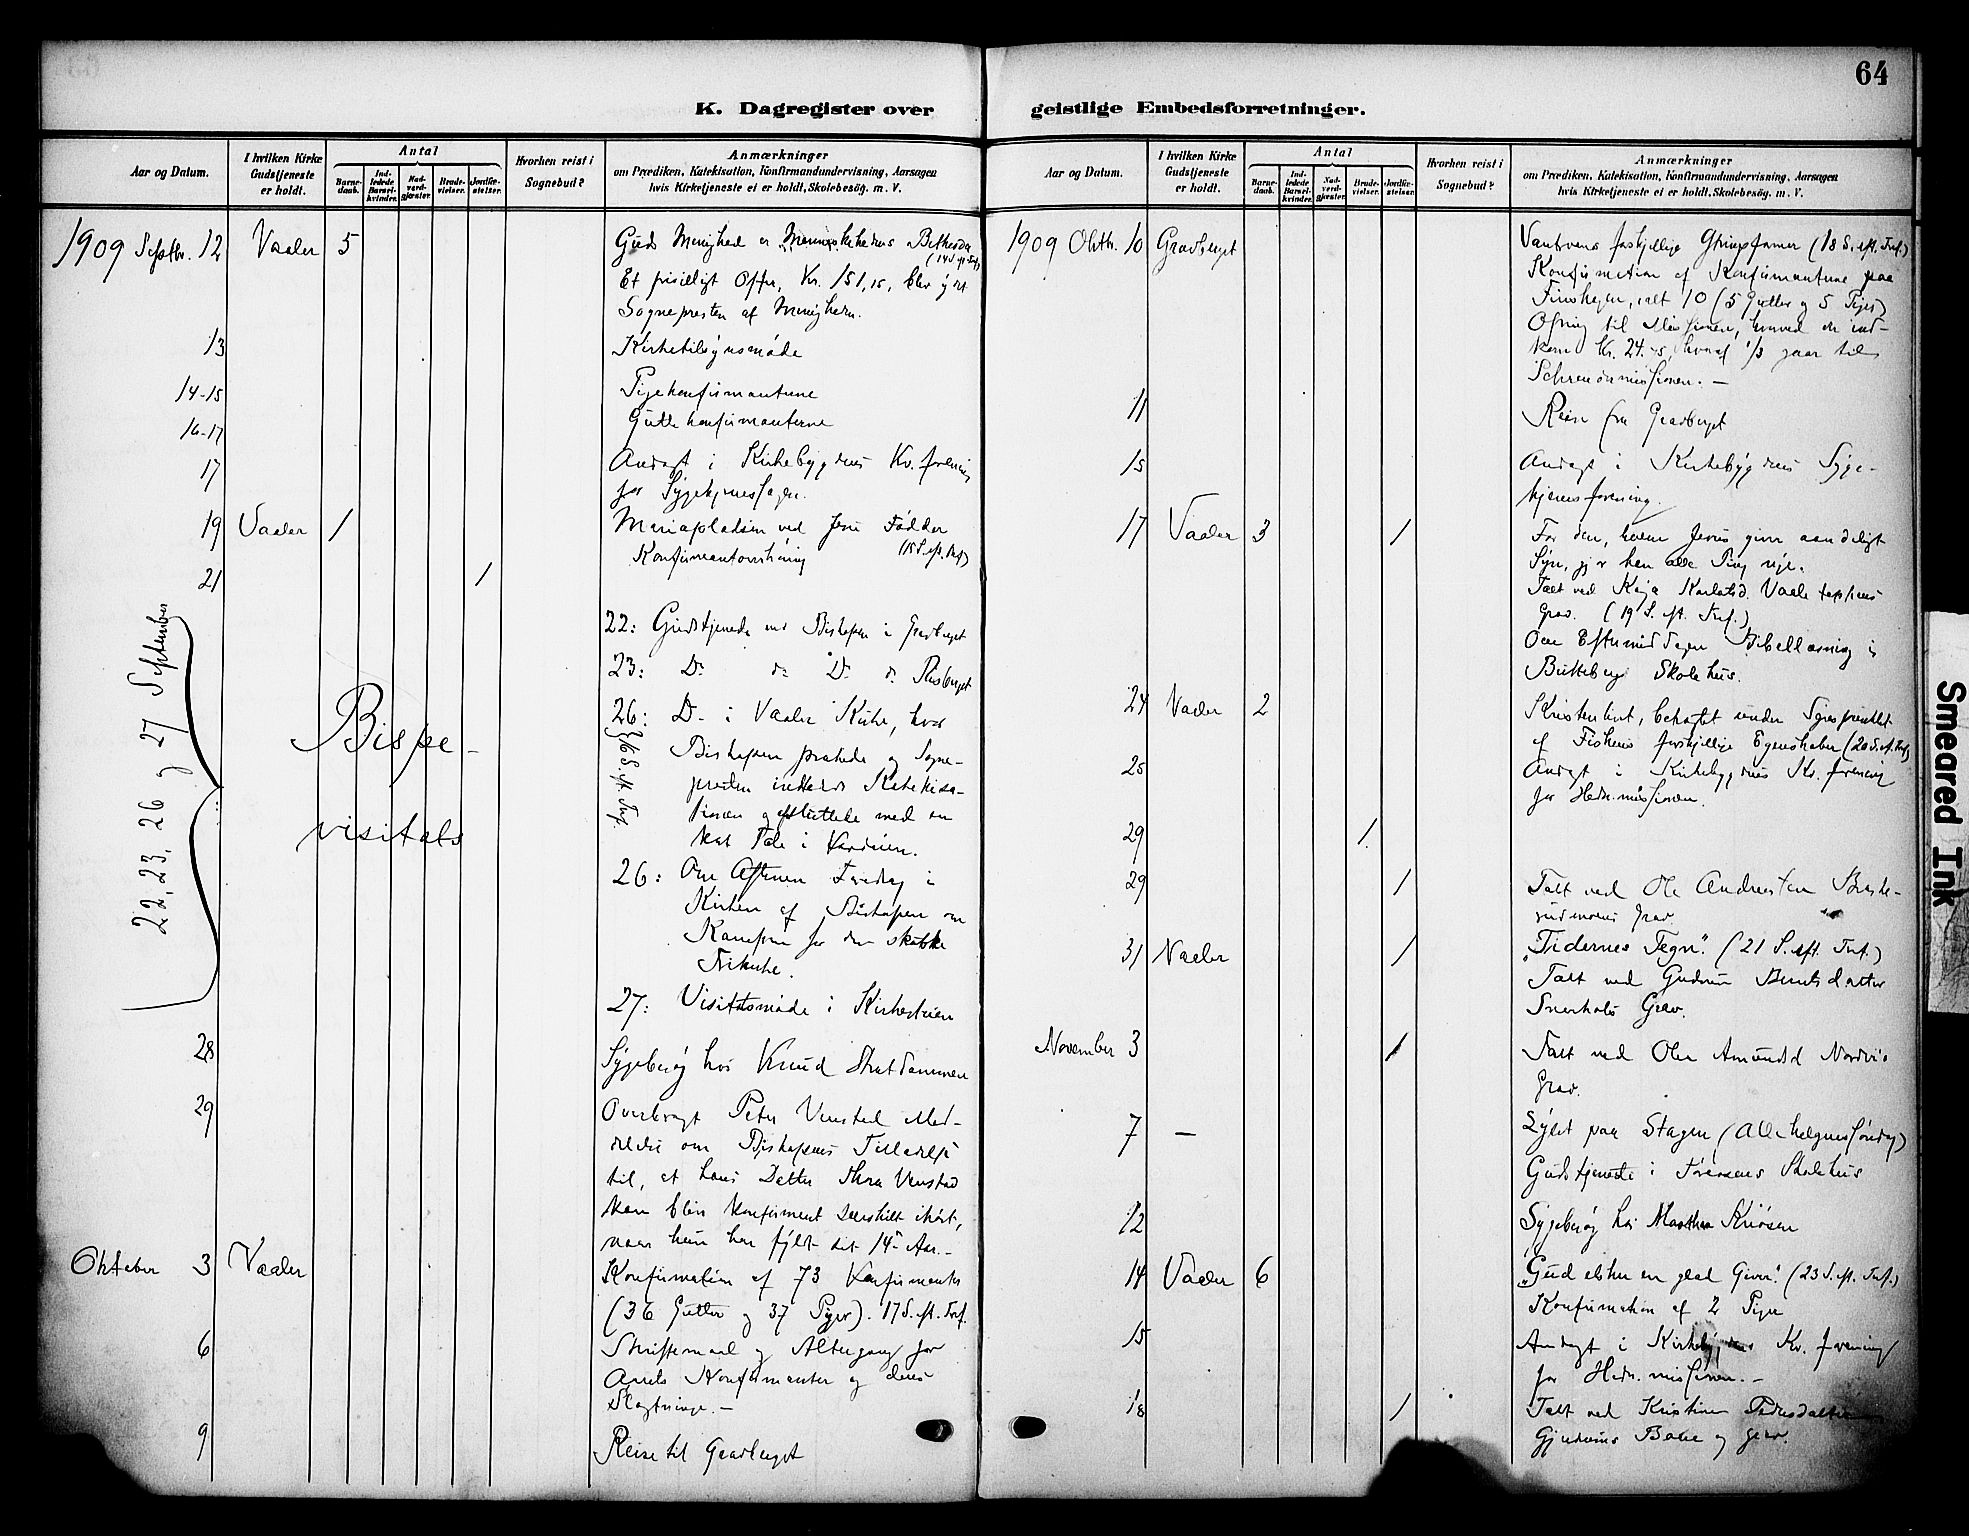 64
K. Dagregister over
geistlige Embedsforretninger.
Aar og Datum.
I hvilken Kirke
Gudstjeneste
er holdt.
Antal
Barne-
daab.
Ind-
ledede
Barsel-
kvinder.
Nad-
verd-
gjæster.
Brude-
vielser.
Jordfæ-
stelser.
Hvorhen reist i
Sognebud?
Anmærkninger
om Prædiken, Katekisation, Konfirmandundervisning, Aarsagen
hvis Kirketjeneste ei er holdt, Skolebesøg. m. V.
1909 Septbr. 12 Vaaler 5 Guds Menighed er Menneskehedens Bethesda
(14 S. eft. Tref.)
Et frivilligt Offer, Kr. 151,15, blev ydet
Sognepresten af Menigheden.
13 Kirketilsynsmøde
14-15 Pigekonfirmanterne
16-17 Guttekonfirmanterne
17 Andagt i Kirkebygdens Kv.forening
for Sygeplejesagen.
19 Vaaler 1 Mariapladsen ved Jesu Fødder
(15 S. eft. Tref.)
Konfirmantoverhøring
21 1
22, 23, 26 og 27 September
Bispe-
visitats
22: Gudstjeneste med Biskopen i Gravberget
23: Do do Do do Risberget
26: Do i Vaaler Kirke, hvor
16 S. eft. Tref.
Biskopen prækede og Sogne-
presten indledede Katekisa-
tionen og afsluttede med en
kort Tale i Kordøren.
26: Om Aftenen Foredrag i
Kirken af Biskopen om
Kampen for den skotske
Frikirke.
27: Visitatsmøde i Kirkestuen
28 Sygebesøg hos Knud Strutdammen
29 Overbragt Peter Venstad Med-
delelse om Biskopens Tilladelse
til, at hans Datter Thora Venstad
kan blive konfirmeret særskilt ihøst,
naar hun har fyldt sit 14de Aar.-
Oktober 3 Vaaler Konfirmation af 73 Konfirmanter
(36 Gutter og 37 Piger). 17 S. eft. Tref.
6 Skriftemaal og Altergang for
Aarets Konfirmanter og deres
Slægtninge.-
9 Reise til Gravberget
Aar og Datum.
I hvilken Kirke
Gudstjeneste
er holdt.
Antal
Barne-
daab.
Ind-
ledede
Barsel-
kvinder.
Nad-
verd-
gjæster.
Brude-
vielser.
Jordfæ-
stelser.
Hvorhen reist i
Sognebud?
Anmærkninger
om Prædiken, Katekisation, Konfirmandundervisning, Aarsagen
hvis Kirketjeneste ei er holdt, Skolebesøg. m. V.
1909 Oktbr. 10 Gravberget Vantroens forskjellige (18 S. eft. Tref.)
Konfirmation af Konfirmanterne paa
Finskogen, ialt 10 (5 Gutter og 5 Piger)
Ofring til Missionen, hvorved der ind-
kom Kr. 24.-5, hvoraf 1/3 gaar til
Schreudermissionen.-
11 Reise fra Gravberget
15 Andagt i Kirkebygdens Syge-
plejeforening.
17 Vaaler 3 1 For den, hvem Jesus giver aandeligt
Syn, er alle Ting nye.
Talt ved Kaja Vaaler
Grav. (19 S. eft. Tref.)
Om Eftermiddagen Bibellæsning i
Butteberg Skolehus.
24 Vaaler 2 Kristenlivet, betragtet under Synspunktet
af Fiskens forskjellige Egenskaber (20 S. eft. Tref.)
25 Andagt i Kirkebygdens Kv.forening
for Hedn.missionen.
29 1
29 1 Talt ved Ole Andreassen
Grav.
31 Vaaler 1 „Tidernes Tegn." (21 S. eft. Tref.)
Talt ved Gudrun Berntsdatter
Snerholts Grav.
November 3 1 Talt ved Ole Amundsd Nordvis
Grav.
7 - Lyset paa Stagen (Allehelgenssøndag)
Gudstjeneste i Skolehus
12 Sygebesøg hos Marthea
14 Vaaler 6 „Gud elsker en glad Giver." (23 S. eft. Tref.)
Konfirmation af 2 Piger
15 Andagt i Kirkebygdens Kv.forening
for Hedn.missionen.-
18 1 Talt ved Kristine Pedersdatter
Baare og Grav.
Smeared Ink